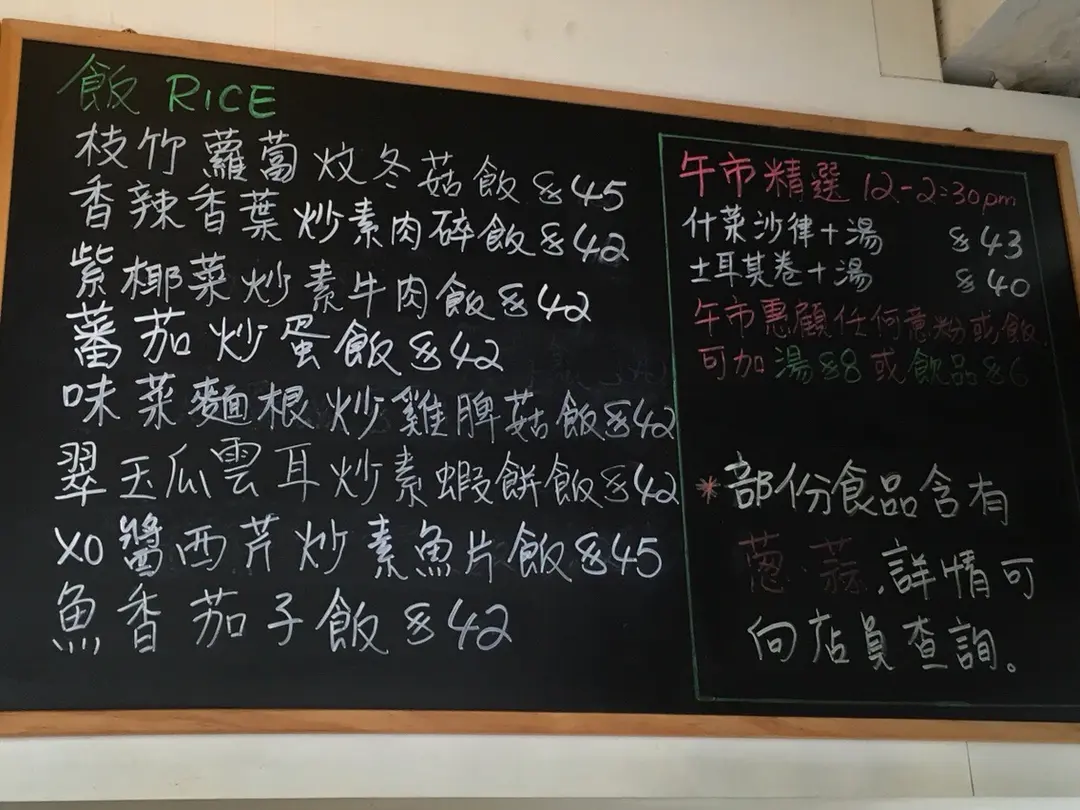 飯 RICE
枝竹蘿蔔炆冬菇飯 $45
香辣香葉炒素肉碎飯 $42
紫椰菜炒素牛肉飯 $42
蕃茄炒蛋飯 $42
味菜麵根炒雞脾菇飯 $42
翠玉瓜雲耳炒素蝦餅飯 $42
XO醬西芹炒素魚片飯 $45
魚香茄子飯 $42
午市精選 12-2:30pm
什菜沙律+湯 $43
土耳其卷+湯 $40
午市惠顧任何意粉或飯,
可加湯$8或飲品$6
*部份食品含有
蔥.蒜,詳情可
向店員查詢。